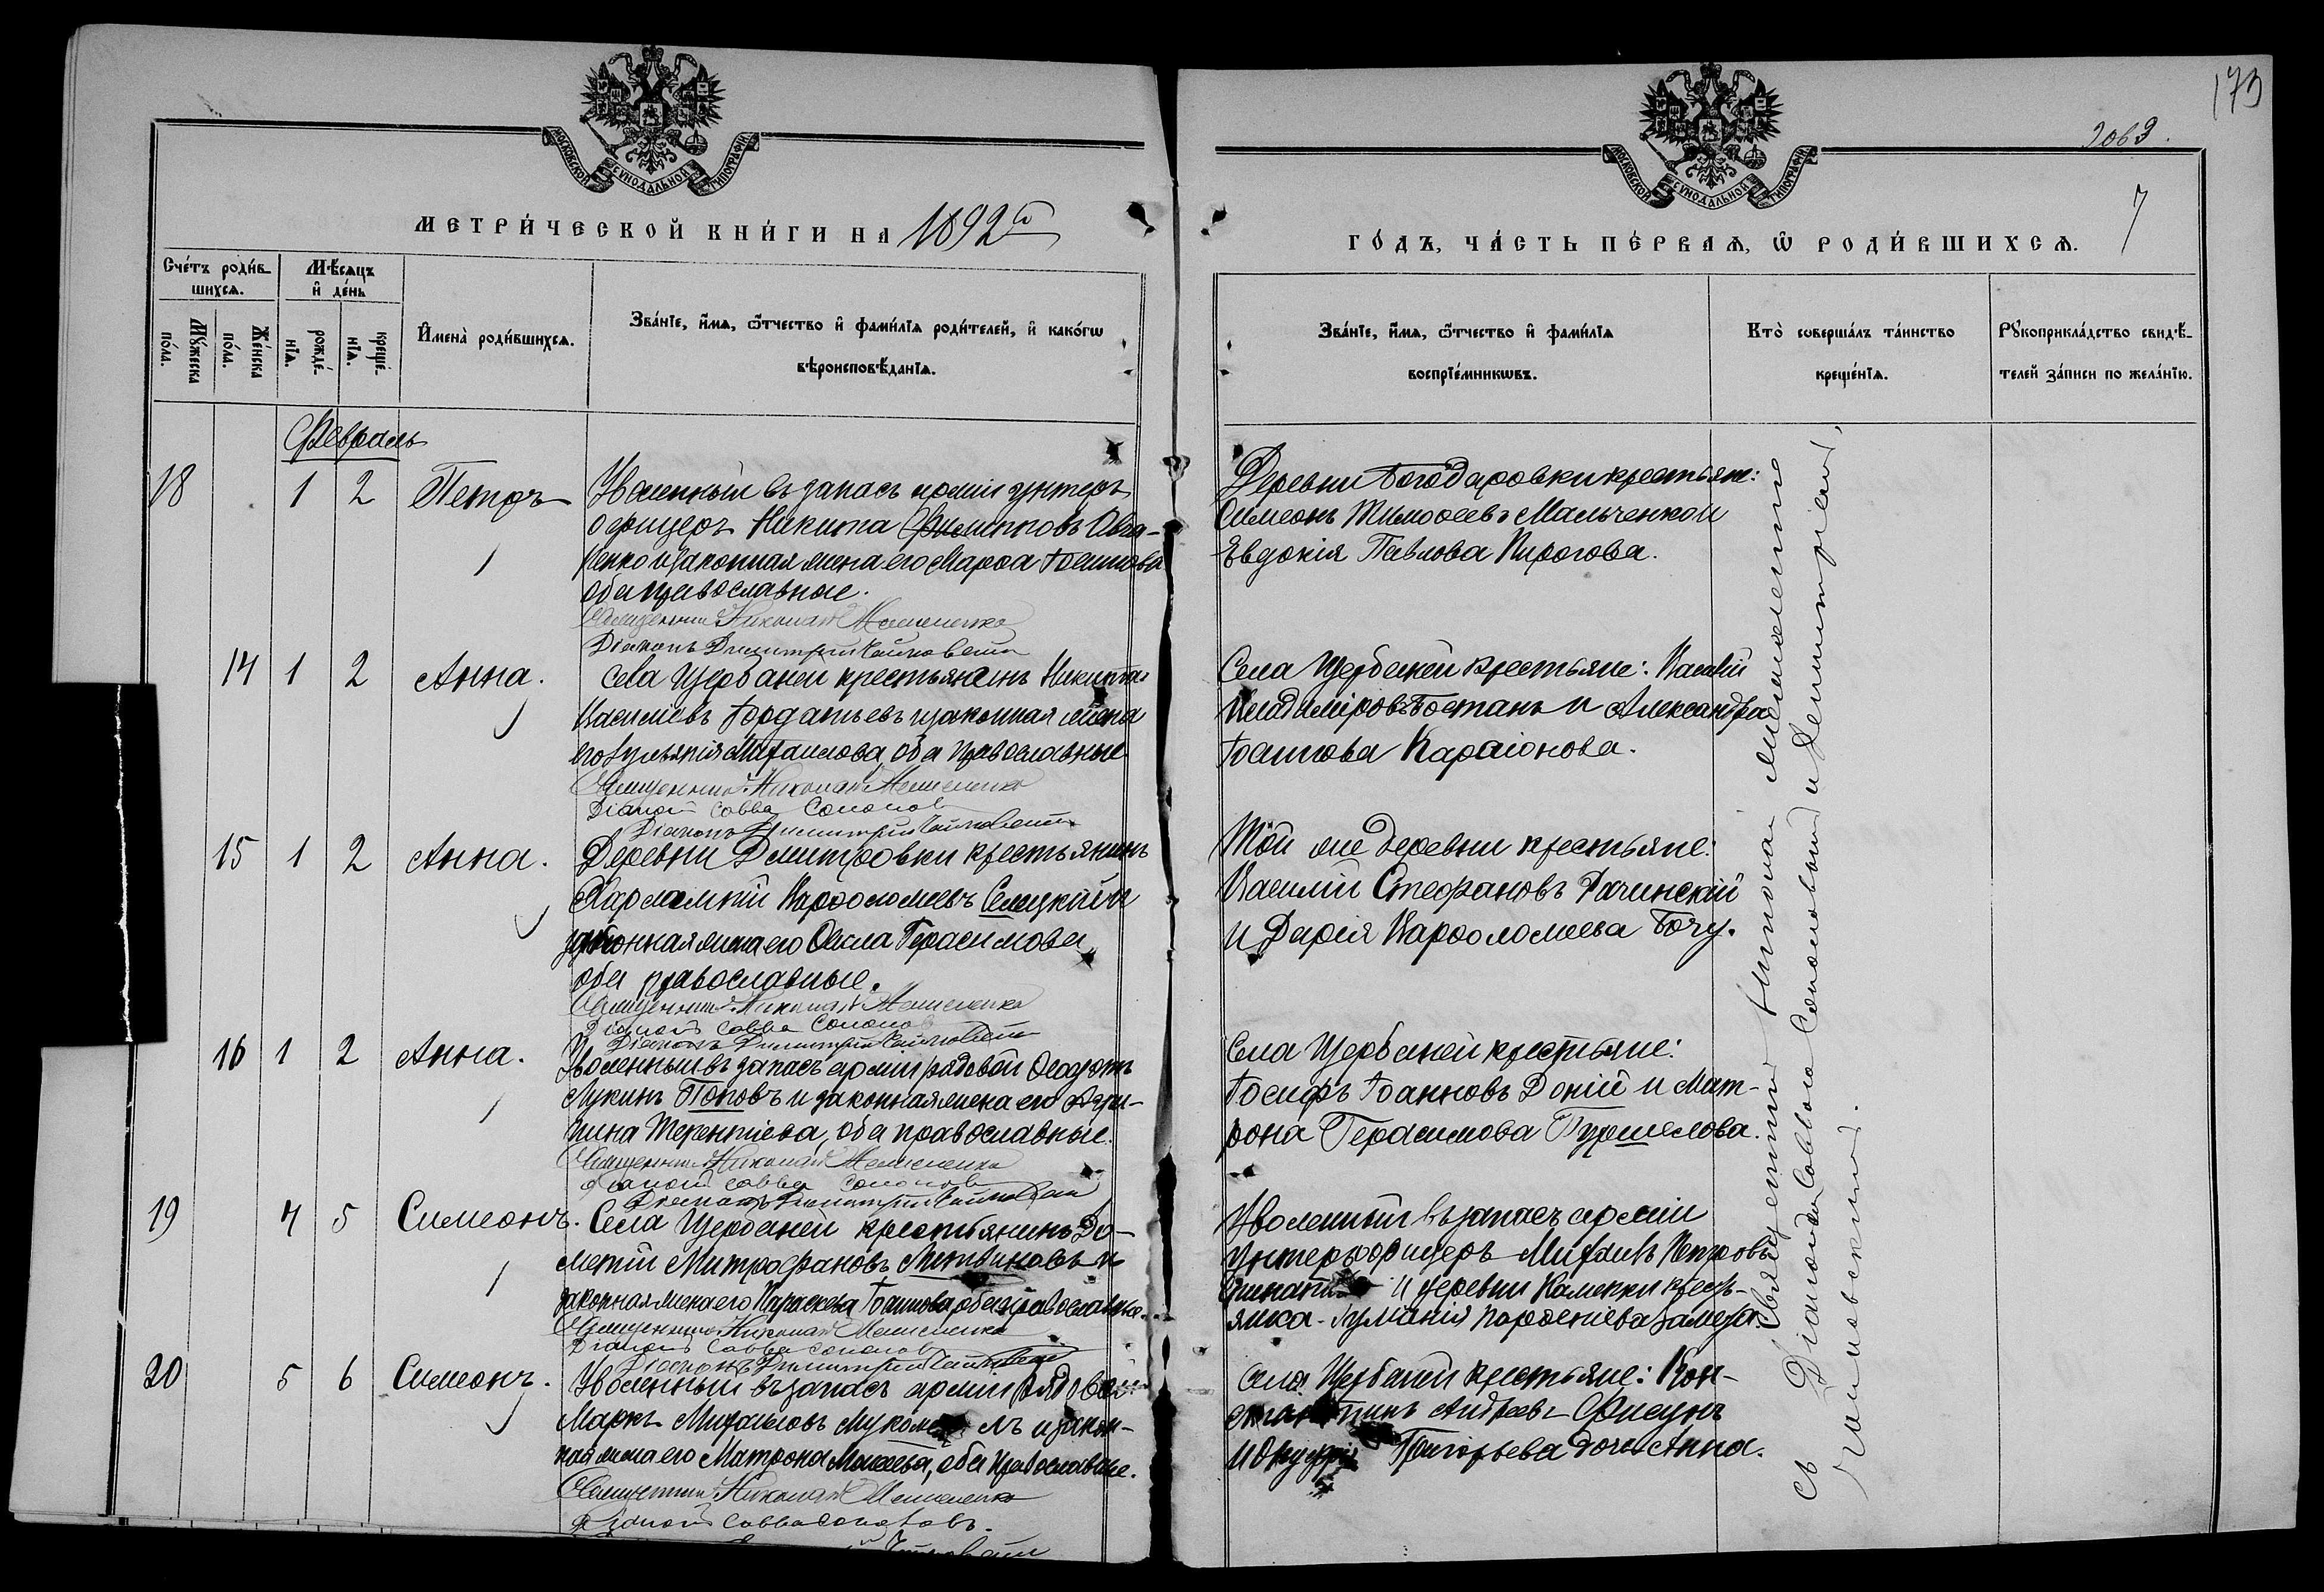 МОСКОВСКОЙ СѴНОДАЛЬНОЙ ТИПОГРАФІИ
МЕТРИ́ЧЕСКОЙ КНИ́ГИ НА 1892й
Сче́тъ роди́в-
шихсѧ.
Мѣ́сѧцъ
и҆ де́нь
Мꙋ́жеска
по́ла.
Же́нска
по́ла.
рожде́-
нїѧ.
креще́-
нїѧ.
И҆мена̀ роди́вшихсѧ.
Зва́нїе, и҆́мѧ, ѻ҆́тчество и҆ фами́лїѧ роди́телей, и҆ како́гѡ
вѣроисповѣ́данїѧ.
Февраль
18 1 2 Петръ
Уволенный въ запасъ арміи унтеръ
офицеръ Никита Филипповъ Овча-
ренко и законная жена его Марѳа Іоаннова
оба православные.
Священникъ Николай
Діаконъ Димитрій Чайковскій
14 1 2 Анна.
Села Щербаней крестьянинъ Никита
Василіевъ и законная жена
его Михайлова, оба православные
Священникъ Николай
Діаконъ Савва Сополовъ
Діаконъ Димитрій Чайковскій
15 1 2 Анна.
Деревни Дмитровки крестьянинъ
Харлампій Варѳоломеевъ Селецкій и
законная жена его Ѳекла Герасимова,
оба православные.
Священникъ Николай
Діаконъ Савва
Діаконъ Димитрій Чайковскій
16 1 2 Анна.
Уволенный въ запасъ арміи рядовой Ѳеодотъ
Лукинъ Поповъ и законная жена его Агри-
пина Терентіева, оба православные.
Священникъ Николай
Діаконъ Савва
Діаконъ Димитрій Чайковскій
19 4 5 Симеонъ.
Села Щербаней крестьянинъ До-
метій Митрофановъ Литвиновъ и
законная жена его Параскева Іоаннова, оба православные.
Священникъ Николай
Діаконъ Савва
Діаконъ Димитрій Чайковскій
20 5 6 Симеонъ.
Уволенный въ запасъ арміи рядовой
Маркъ Михайловъ и закон-
ная жена его Матрона оба православные.
Священникъ Николай
Діаконъ Савва
173
7
МОСКОВСКОЙ СѴНОДАЛЬНОЙ ТИПОГРАФІИ
ГО́ДЪ, ЧА́СТЬ ПЕ́РВАѦ, Ѡ҆ РОДИ́ВШИХСѦ.
Зва́нїе, и҆́мѧ, ѻ҆́тчество и҆ фами́лїѧ
воспрїе́мникѡвъ.
Кто̀ соверша́лъ та́инство
креще́нїѧ.
Рꙋкоприкла́дство свидѣ́-
телей за́писи по жела́нїю.
Деревни Богодаровки крестьяне:
Симеонъ Тимоѳеевъ Мальченко и
Евдокія Павлова Пирогова.
Села Щербаней крестьяне: Василій
Владиміровъ Бостанъ и Александра
Іоаннова Караіонова.
Той же деревни крестьяне:
Василій Стефановъ Рачинскій
и Дарія Варѳоломеева Бочу.
Села Щербаней крестьяне:
Іосифъ Іоанновъ Доній и Мат-
рона Герасимова
Уволенный въ запасъ арміи
унтеръ офицеръ Михаилъ Петровъ
и деревни Каменки кресть-
янка Парѳеніева
Села Щербаней крестьяне: Кон-
стантинъ Андреевъ Фисунъ
и Григорьева дочь Анна.
Священникъ Николай
съ Діаконами Саввою Сополовымъ и Димитріемъ
Чайковскимъ.